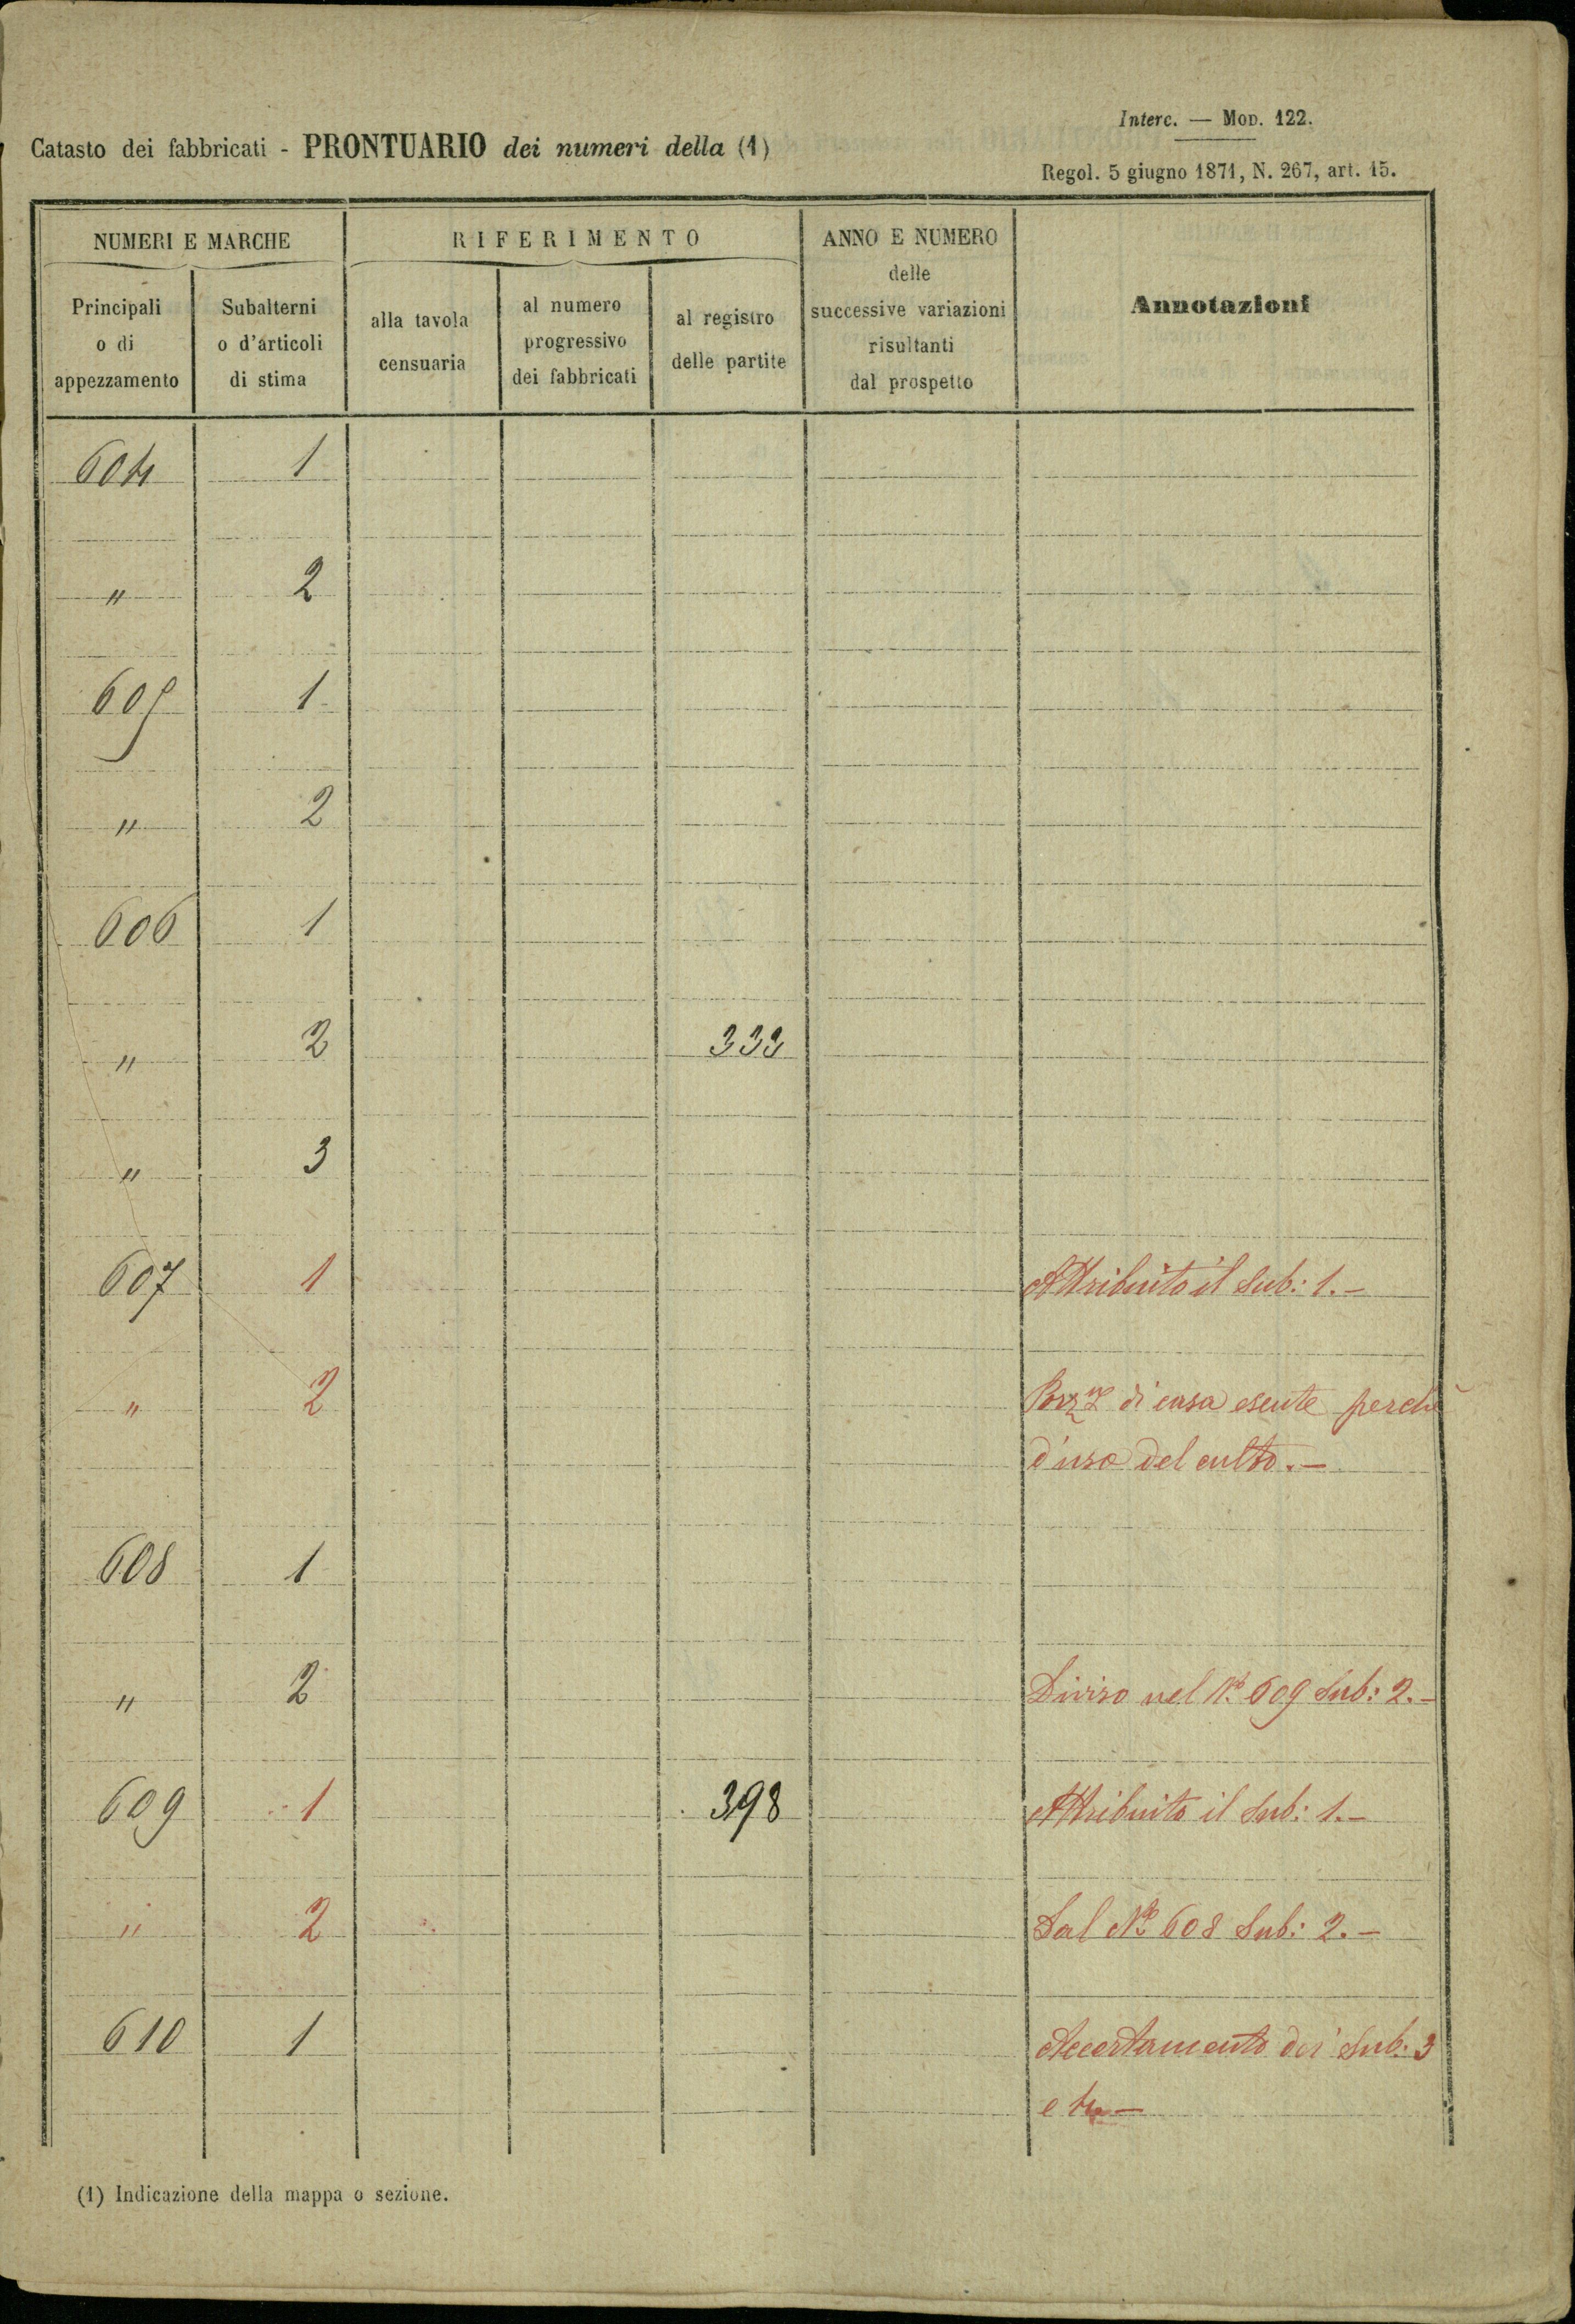 Interc. — Mod. 122.
Catasto dei fabbricati - PRONTUARIO dei numeri della (1)
Regol. 5 giugno 1871, N. 267, art. 15.
NUMERI E MARCHE RIFERIMENTO ANNO E NUMERO delle successive variazioni risultanti dal prospetto Annotazioni
Principali o di appezzamento Subalterni o d'articoli di stima alla tavola censuaria al numero progressivo dei fabbricati al registro delle partite
604 1
" 2
605 1
" 2
606 1
" 2 333
" 3
607 1 Attribuito il Sub: 1.-
" 2 Porz.ne di casa esente perchè
d'uso del culto.-
608 1
" 2 Diviso nel N.o 609 Sub: 2.-
609 1 398 Attribuito il Sub: 1.-
" 2 Dal N.o 608 Sub: 2.-
610 1 Accertamento dei Sub: 3
e 4-
(1) Indicazione della mappa o sezione.